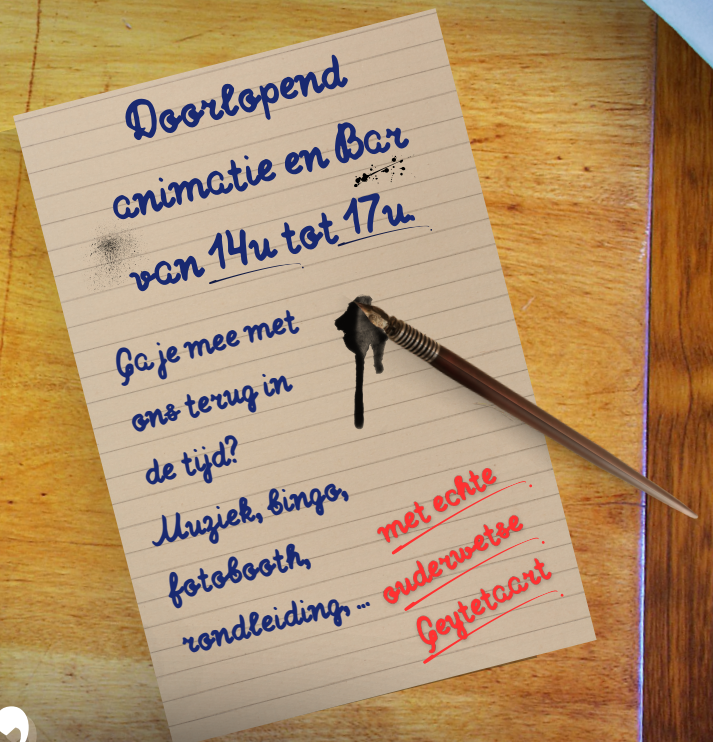 Doorlopend
animatie en Bar
van 14u tot 17u.
Ga je mee met
ons terug in
de tijd?
Muziek, bingo,
fotobooth,
rondleiding, ...
met echte
ouderwetse
Geytetaart